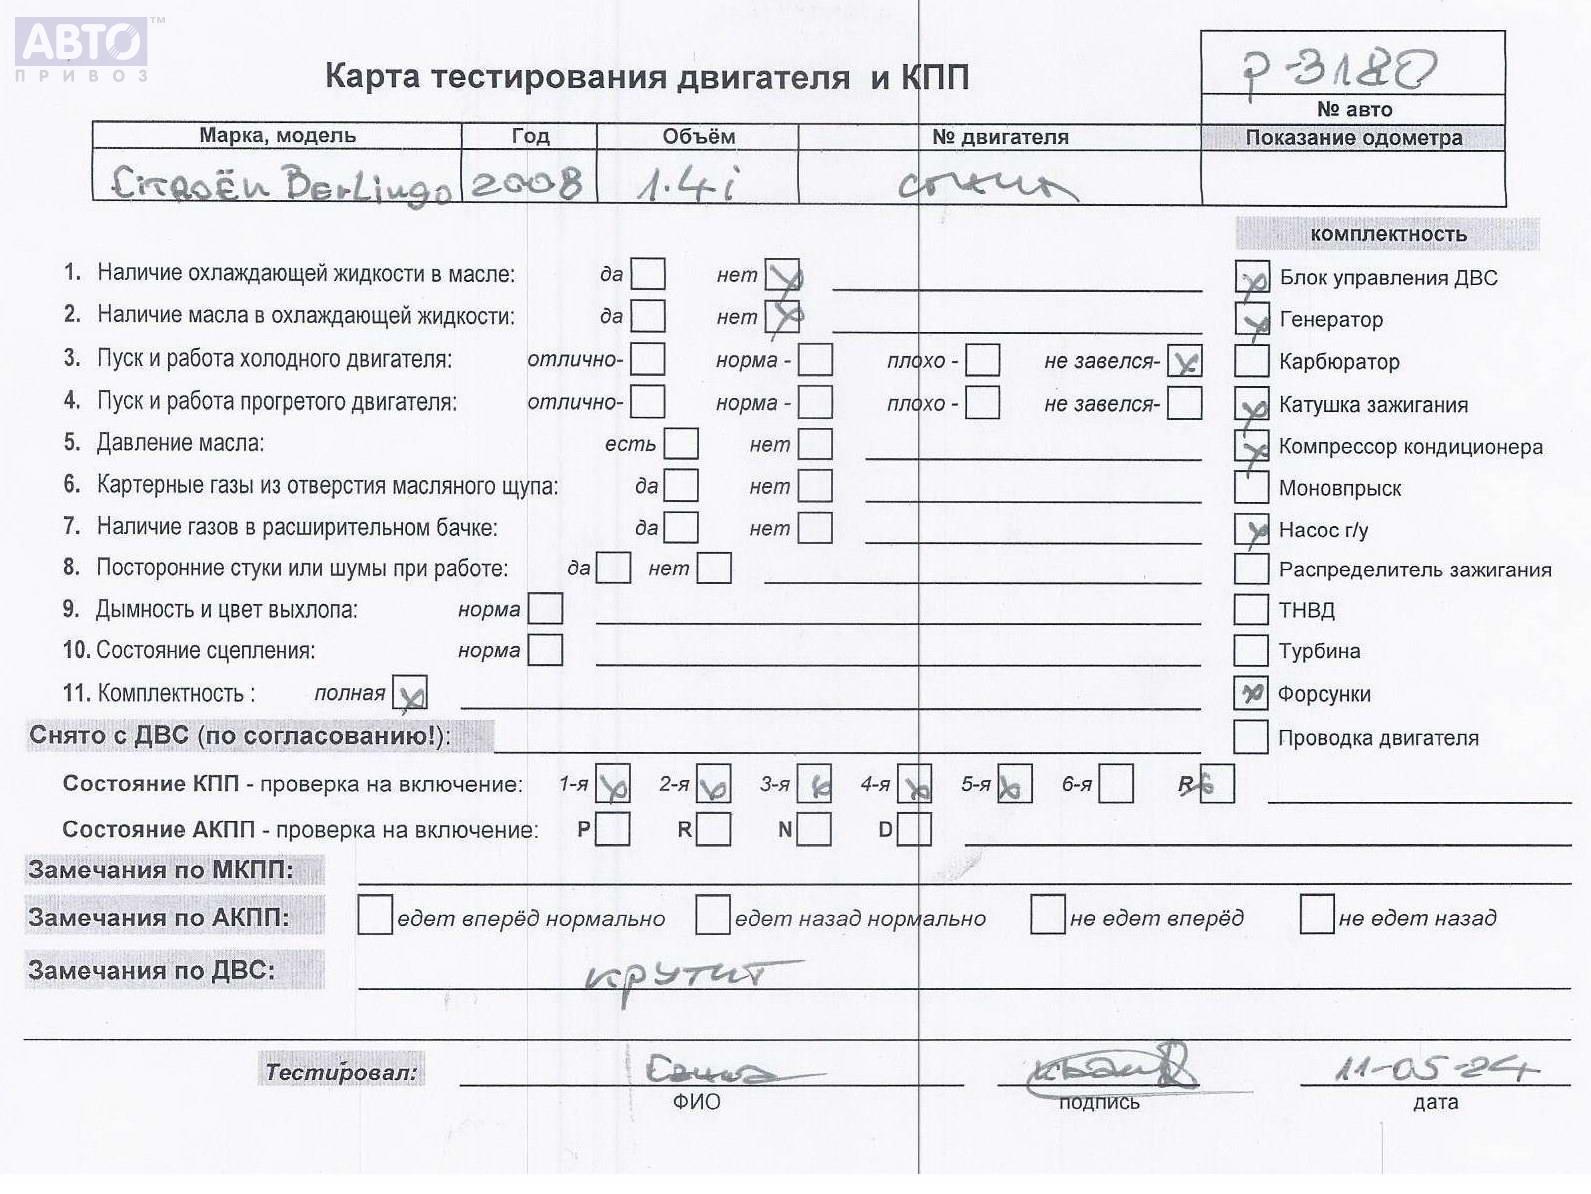 АВТО™
ПРИВОЗ
Карта тестирования двигателя и КПП
P-3180
№ авто
Марка, модель Год Объём № двигателя Показание одометра
Citroën Berlingo 2008 1.4i
комплектность
1. Наличие охлаждающей жидкости в масле: да нет
Блок управления ДВС
2. Наличие масла в охлаждающей жидкости: да нет
Генератор
3. Пуск и работа холодного двигателя: отлично- норма - плохо - не завелся-
Карбюратор
4. Пуск и работа прогретого двигателя: отлично- норма - плохо - не завелся-
Катушка зажигания
5. Давление масла: есть нет
Компрессор кондиционера
6. Картерные газы из отверстия масляного щупа: да нет
Моновпрыск
7. Наличие газов в расширительном бачке: да нет
Насос г/у
8. Посторонние стуки или шумы при работе: да нет
Распределитель зажигания
9. Дымность и цвет выхлопа: норма
ТНВД
10. Состояние сцепления: норма
Турбина
11. Комплектность : полная
Форсунки
Снято с ДВС (по согласованию!):
Проводка двигателя
Состояние КПП - проверка на включение: 1-я 2-я 3-я 4-я 5-я 6-я R
Состояние АКПП - проверка на включение: P R N D
Замечания по МКПП:
Замечания по АКПП: едет вперёд нормально едет назад нормально не едет вперёд не едет назад
Замечания по ДВС: крутит
Тестировал: 11-05-24
ФИО подпись дата